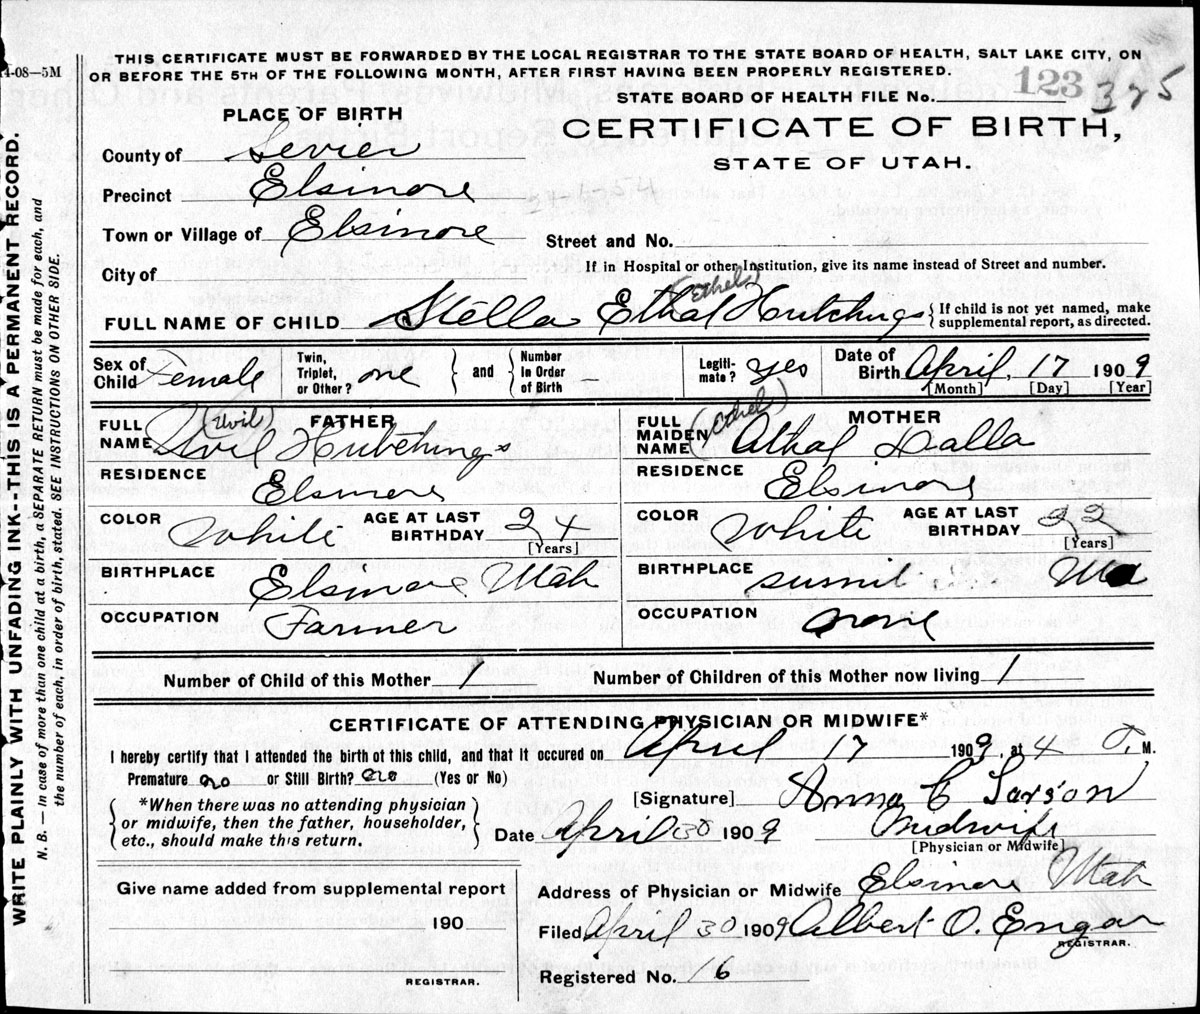 14-08—5M
THIS CERTIFICATE MUST BE FORWARDED BY THE LOCAL REGISTRAR TO THE STATE BOARD OF HEALTH, SALT LAKE CITY, ON
OR BEFORE THE 5TH OF THE FOLLOWING MONTH, AFTER FIRST HAVING BEEN PROPERLY REGISTERED.
STATE BOARD OF HEALTH FILE No. 123 325
PLACE OF BIRTH
CERTIFICATE OF BIRTH,
STATE OF UTAH.
County of Sevier
Precinct Elsinore
Town or Village of Elsinore
Street and No.
City of
If in Hospital or other Institution, give its name instead of Street and number.
(Ethels)
FULL NAME OF CHILD Stella Ethal Hutchings { If child is not yet named, make supplemental report, as directed.
Sex of Child Female
Twin, Triplet, or Other? one } and { Number in Order of Birth —
Legitimate? yes
Date of Birth April, 17 1909
[Month] [Day] [Year]
FATHER
FULL NAME (Uvil) Hutchings
RESIDENCE Elsinore
COLOR White
AGE AT LAST BIRTHDAY 24 [Years]
BIRTHPLACE Elsinore Utah
OCCUPATION Farmer
MOTHER
FULL MAIDEN NAME Athal
RESIDENCE Elsinore
COLOR White
AGE AT LAST BIRTHDAY 22 [Years]
BIRTHPLACE
OCCUPATION None
Number of Child of this Mother 1
Number of Children of this Mother now living 1
CERTIFICATE OF ATTENDING PHYSICIAN OR MIDWIFE*
I hereby certify that I attended the birth of this child, and that it occured on April 17 1909, at 4 M.
Premature no or Still Birth? no (Yes or No)
*When there was no attending physician
or midwife, then the father, householder,
etc., should make this return.
[Signature] Anna C Larson
Date April 30 1909 Midwife
[Physician or Midwife]
Give name added from supplemental report
190
REGISTRAR.
Address of Physician or Midwife Elsinore Utah
Filed April 30 1909 Albert O.
REGISTRAR.
Registered No. 16
WRITE PLAINLY WITH UNFADING INK--THIS IS A PERMANENT RECORD.
N. B. — In case of more than one child at a birth, a SEPARATE RETURN must be made for each, and
the number of each, in order of birth, stated. SEE INSTRUCTIONS ON OTHER SIDE.